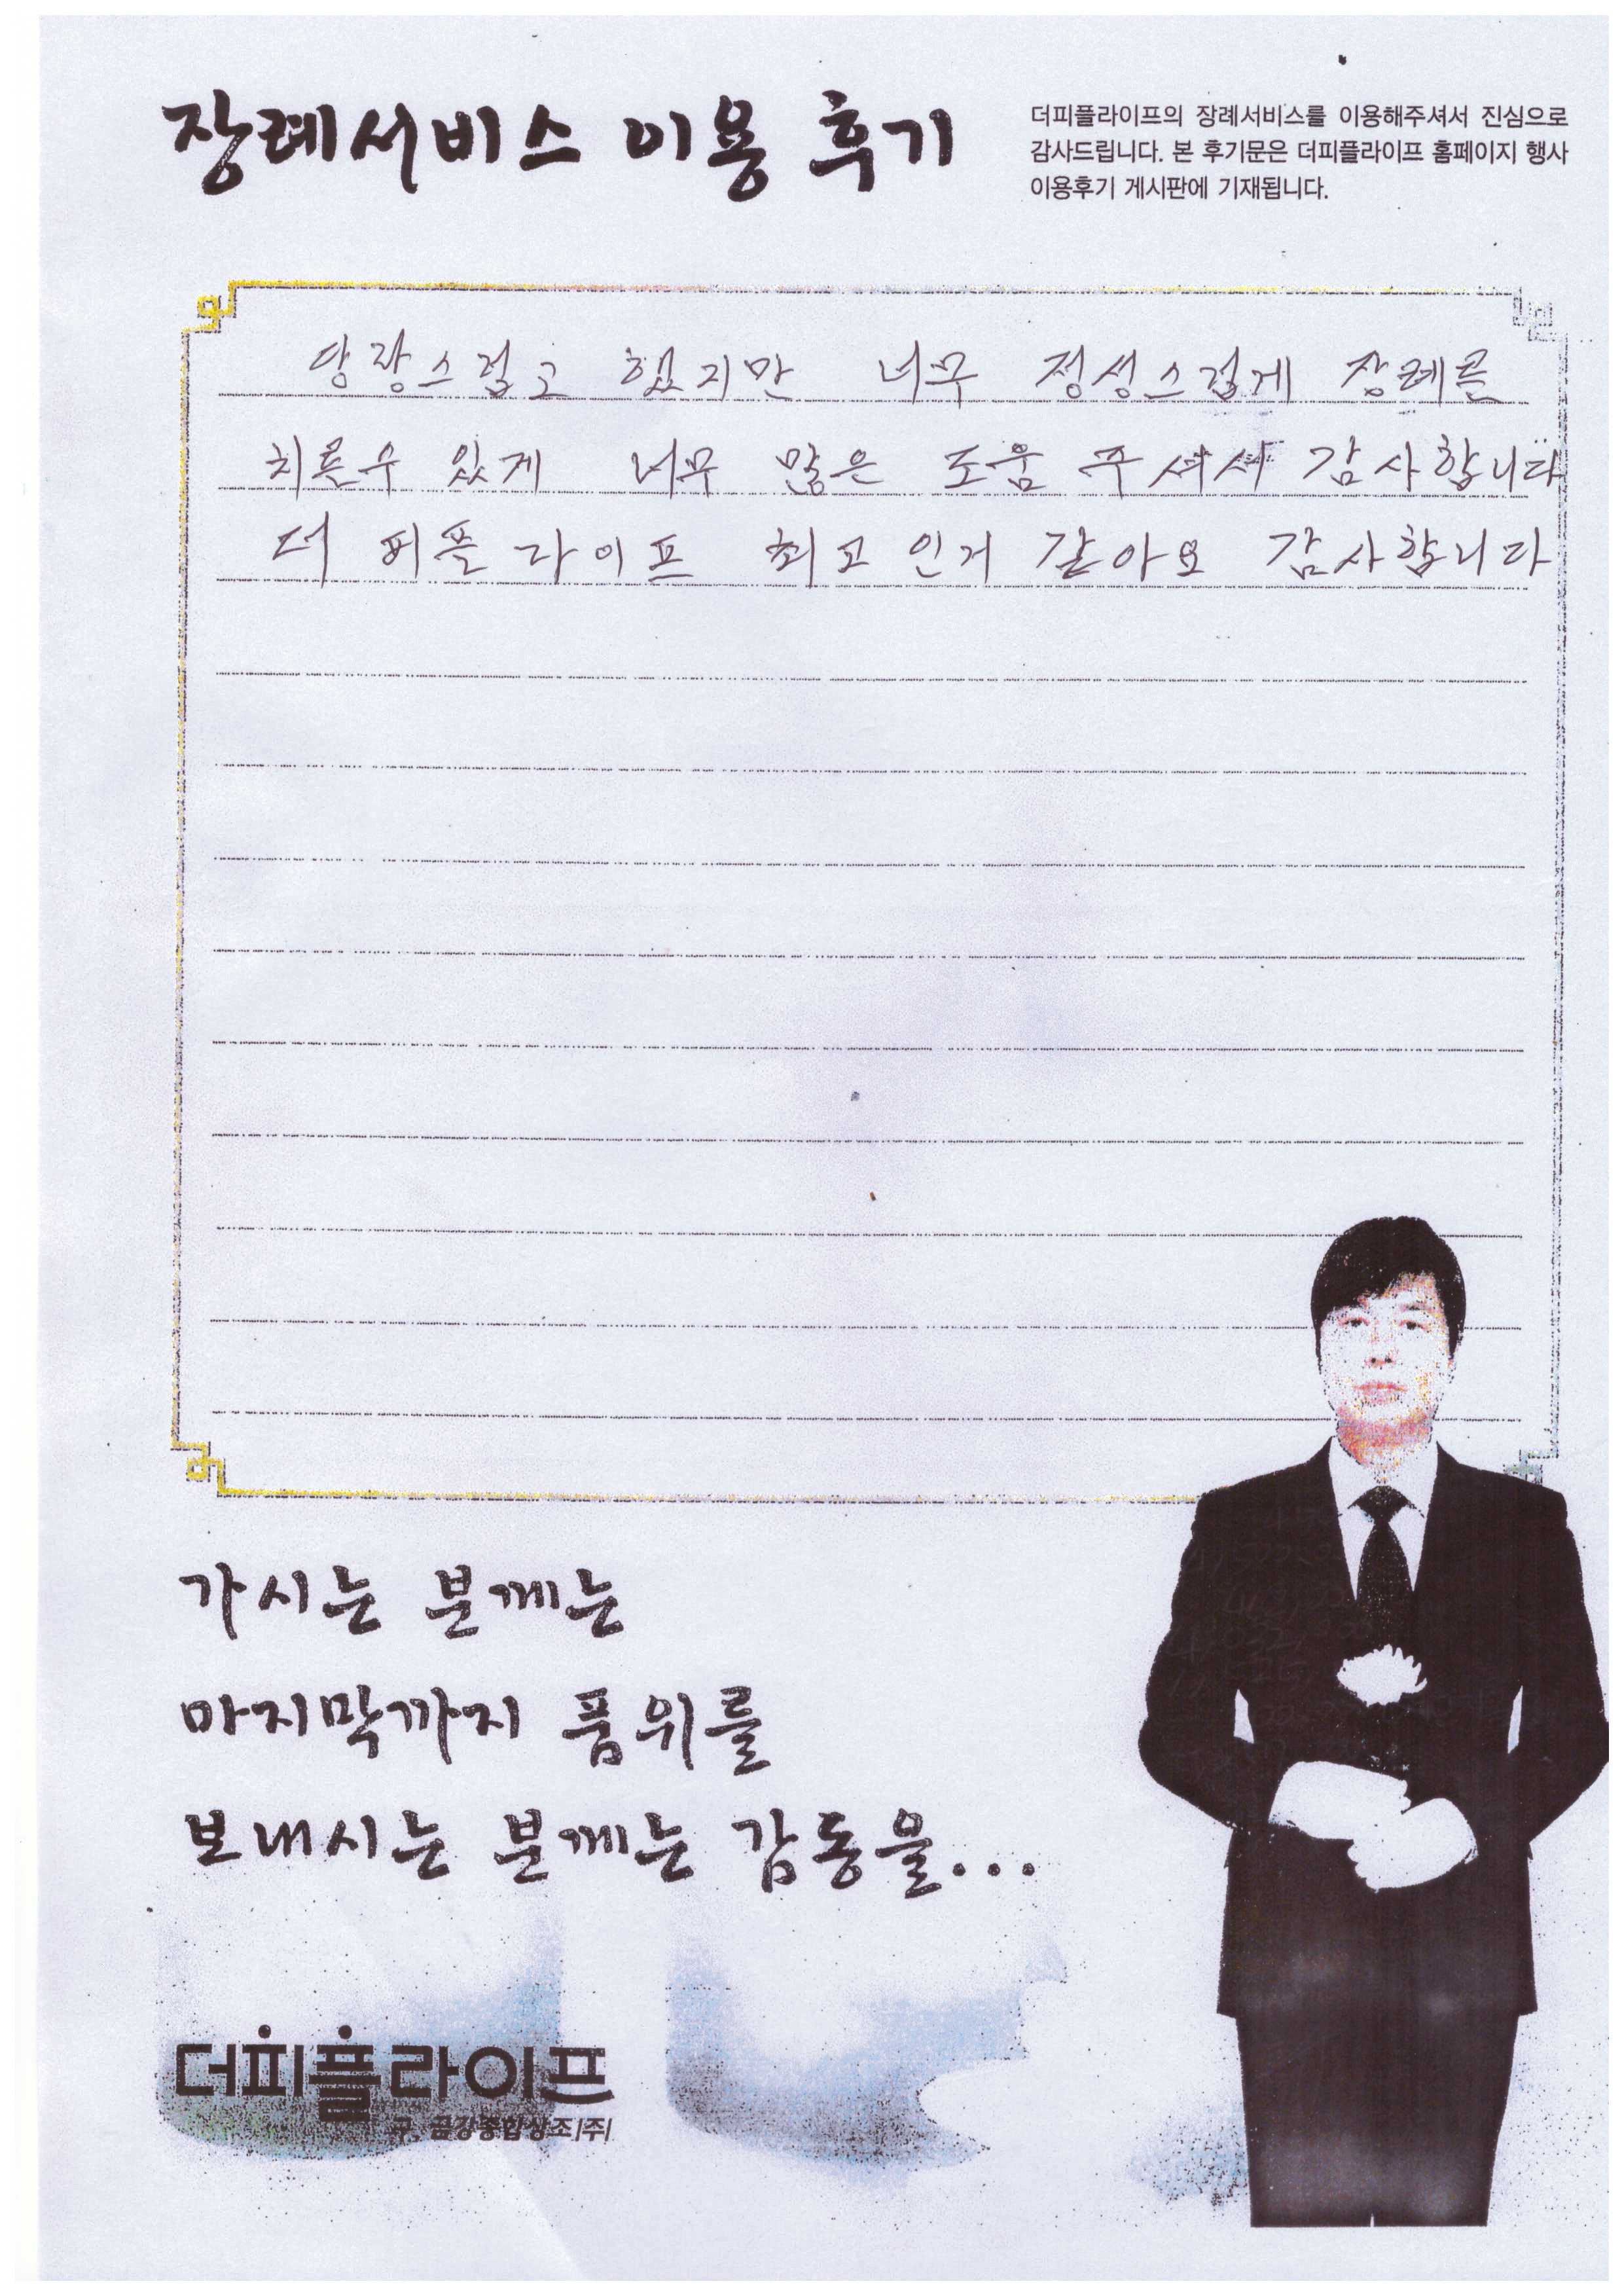 장례서비스 이용 후기
더피플라이프의 장례서비스를 이용해주셔서 진심으로
감사드립니다. 본 후기문은 더피플라이프 홈페이지 행사
이용후기 게시판에 기재됩니다.
당황스럽고 했지만 너무 정성스럽게 장례를
치룰수 있게 너무 많은 도움 주셔서 감사합니다
더 피플 라이프 최고 인거 같아요 감사합니다
가시는 분께는
마지막까지 품위를
보내시는 분께는 감동을...
더피플라이프
구. 금강종합상조|주|